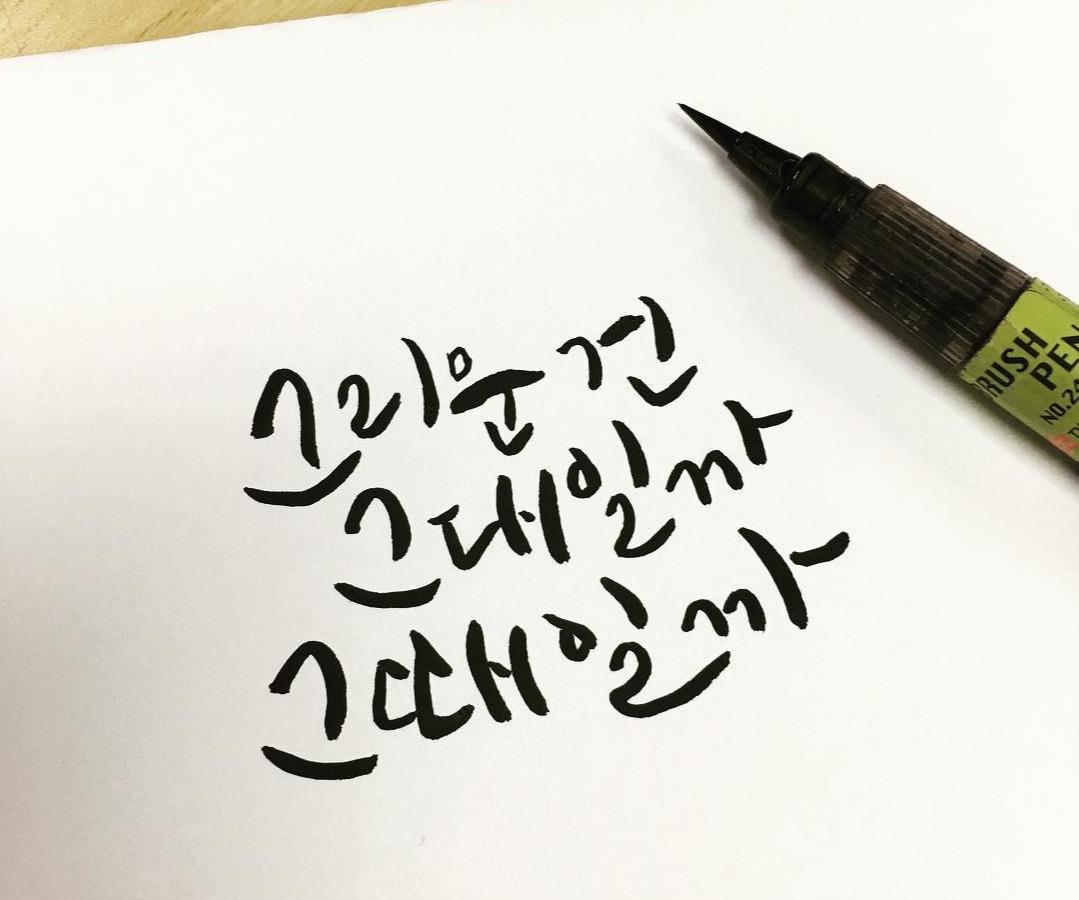 그리운 건
그대일까
그때일까
BRUSH
PEN
NO.24